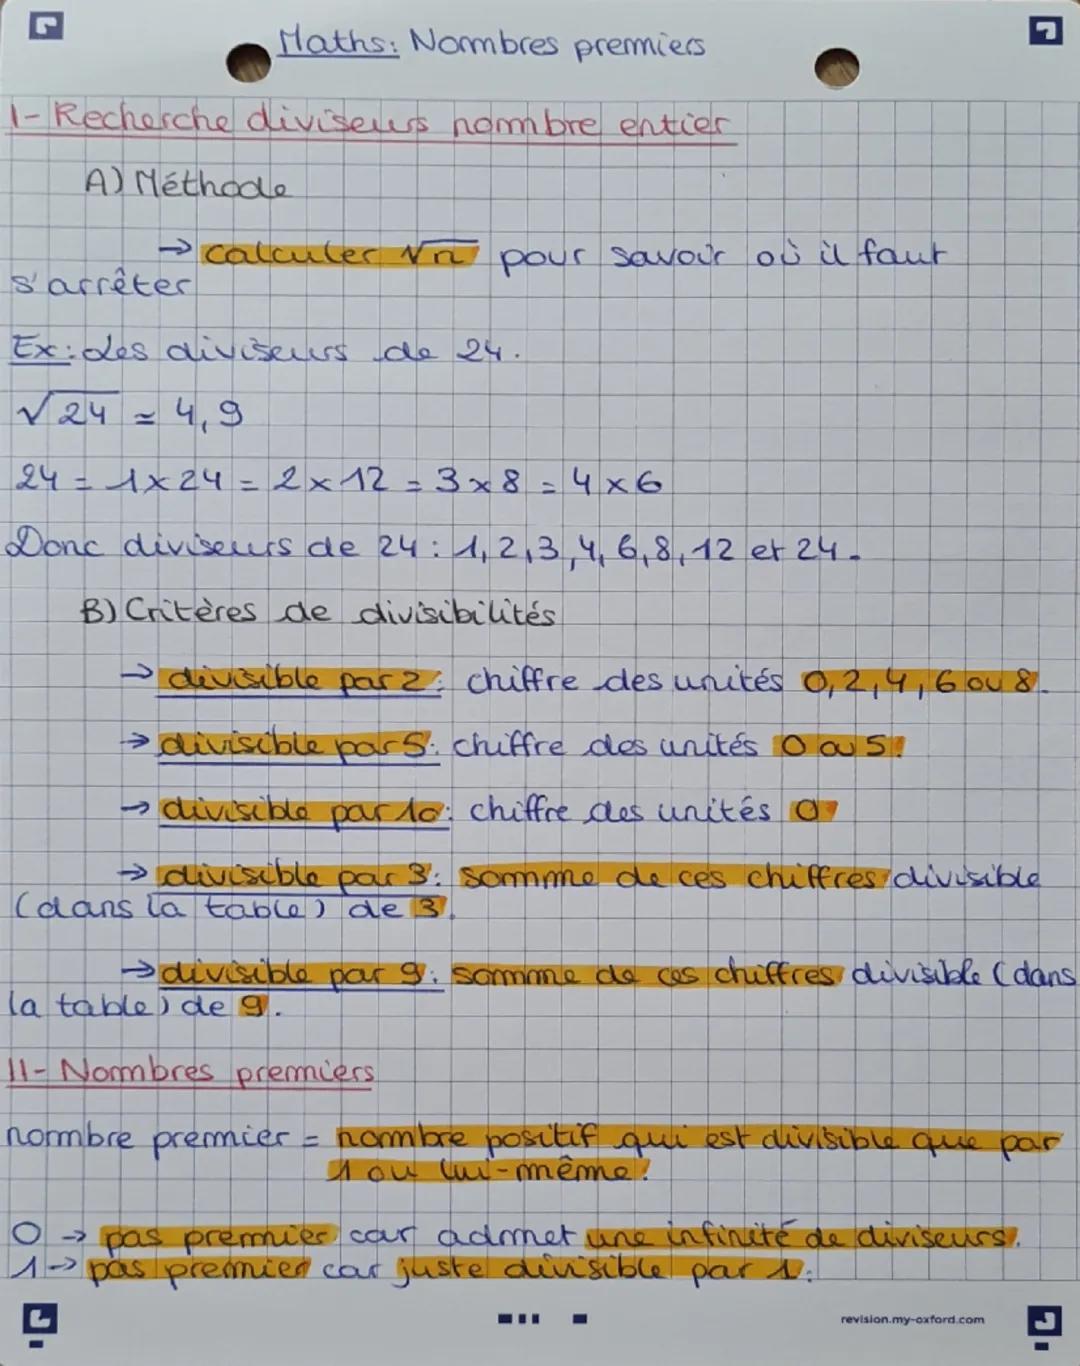 Maths: Nombres premiers
I- Recherche diviseurs nombre entier
A) Méthode
→ calculer √n pour savoir où il faut
s'arrêter
Ex: des diviseurs de 24.
√24 ≃ 4,9
24 = 1×24 = 2×12 = 3×8 = 4×6
Donc diviseurs de 24: 1, 2, 3, 4, 6, 8, 12 et 24.
B) Critères de divisibilités
→ divisible par 2: chiffre des unités 0, 2, 4, 6 ou 8.
→ divisible par 5: chiffre des unités 0 ou 5.
→ divisible par 10: chiffre des unités 0
→ divisible par 3: somme de ces chiffres divisible
(dans la table) de 3.
→ divisible par 9: somme de ces chiffres divisible (dans
la table) de 9.
II- Nombres premiers
nombre premier = nombre positif qui est divisible que par
1 ou lui-même.
0 → pas premier car admet une infinité de diviseurs.
1 → pas premier car juste divisible par 1.
revision.my-oxford.com